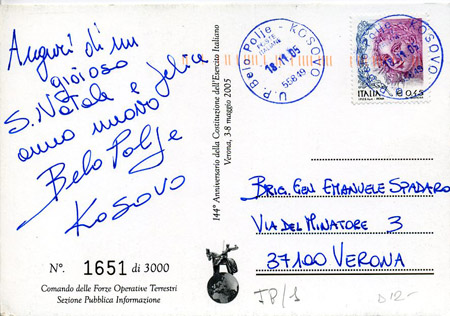 Auguri di un
gioioso
S. Natale e felice
anno nuovo
Belo Polje
Kosovo
N°. 1651 di 3000
Comando delle Forze Operative Terrestri
Sezione Pubblica Informazione
144° Anniversario della Costituzione dell'Esercito Italiano
Verona, 3-8 maggio 2005
U.P. Belo Polje - KOSOVO
POSTE
ITALIANE
18.11.05
ITALIA
€ 0,45
BRIG. GEN EMANUELE SPADARO
VIA DEL MINATORE 3
37100 VERONA